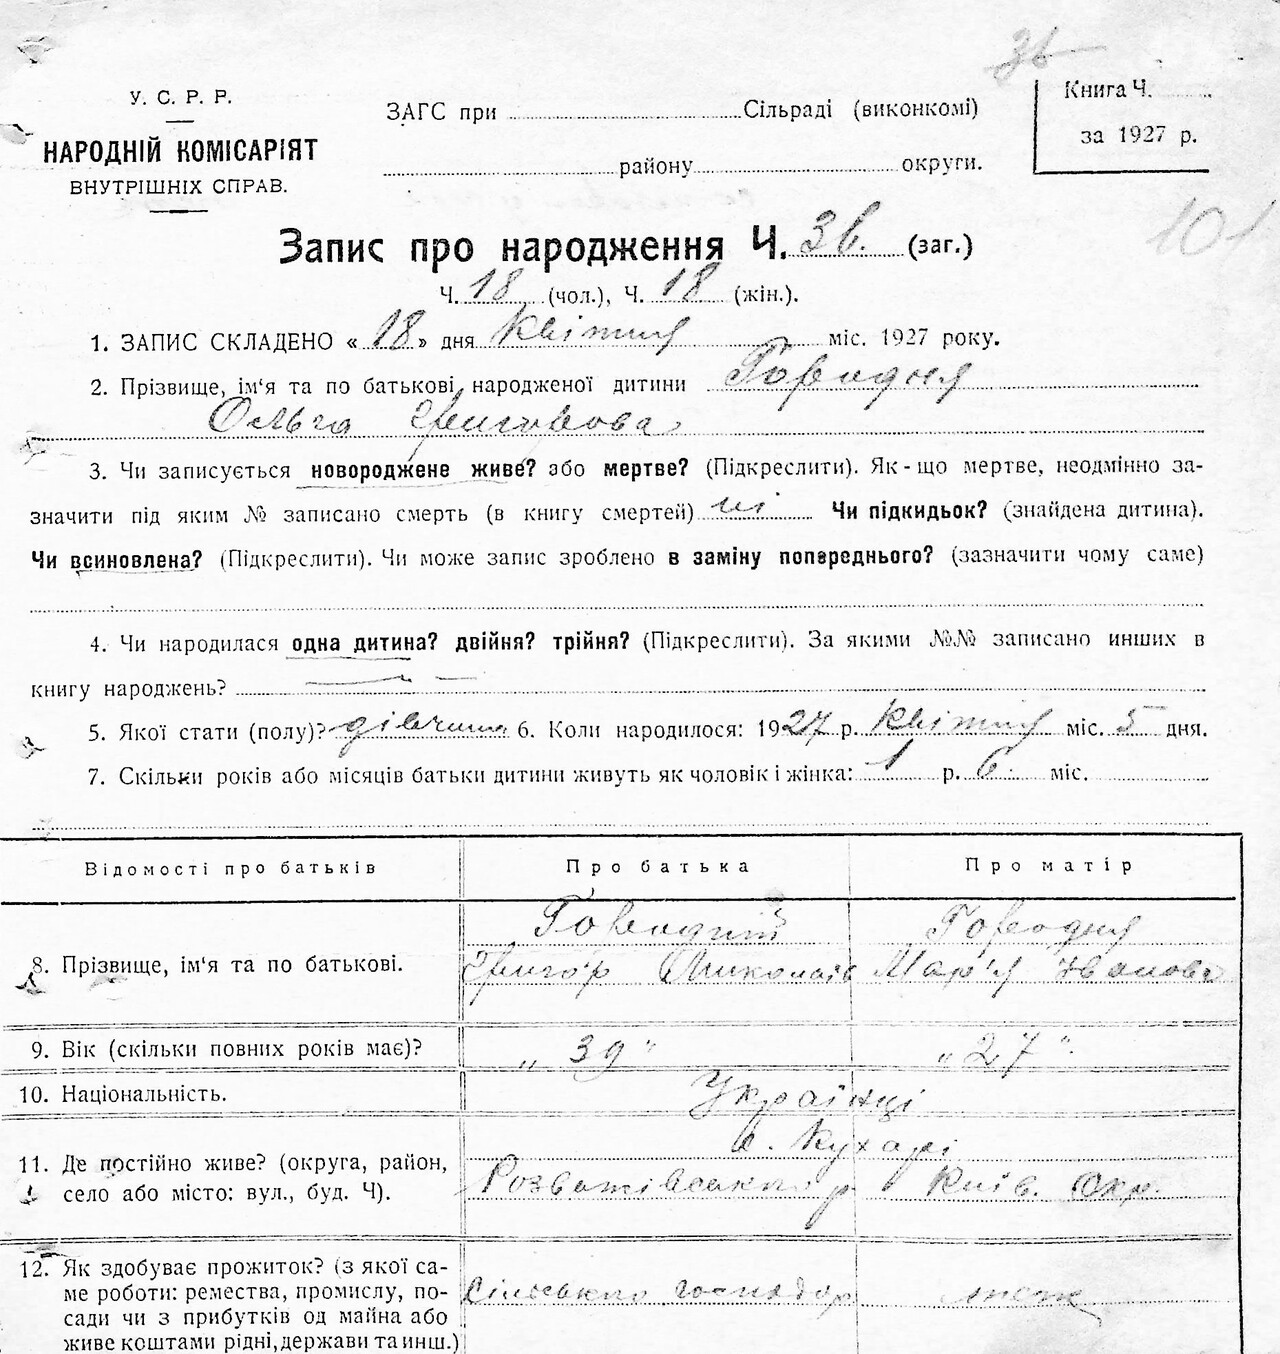 36
У. С. Р. Р.
НАРОДНІЙ КОМІСАРІЯТ
ВНУТРІШНІХ СПРАВ.
ЗАГС при Сільраді (виконкомі)
району округи.
Книга Ч.
за 1927 р.
101
Запис про народження Ч. 36. (заг.)
Ч. 18 (чол.), Ч. 18 (жін.).
1. ЗАПИС СКЛАДЕНО « 18 » дня Квітня міс. 1927 року.
2. Прізвище, ім‘я та по батькові народженої дитини
Ольга Григорова
3. Чи записується новороджене живе? або мертве? (Підкреслити). Як-що мертве, неодмінно за-
значити під яким № записано смерть (в книгу смертей) ні Чи підкидьок? (знайдена дитина).
Чи всиновлена? (Підкреслити). Чи може запис зроблено в заміну попереднього? (зазначити чому саме)
4. Чи народилася одна дитина? двійня? трійня? (Підкреслити). За якими №№ записано инших в
книгу народжень?
5. Якої стати (полу)? дівчина 6. Коли народилося: 1927 р. Квітня міс. 5 дня.
7. Скільки років або місяців батьки дитини живуть як чоловік і жінка: 1 р. 6 міс.
Відомості про батьків Про батька Про матір
8. Прізвище, ім‘я та по батькові.
Григор Миколаїв Мар'я Іванова
9. Вік (скільки повних років має)? „ 39 “ „ 27 “
10. Національність. Українці
с. Кухарі
11. Де постійно живе? (округа, район,
село або місто: вул., буд. Ч). Розважівського р Київ. Окр.
12. Як здобуває прожиток? (з якої са-
ме роботи: ремества, промислу, по-
сади чи з прибутків од майна або
живе коштами рідні, держави та инш.)
сільського господар теж